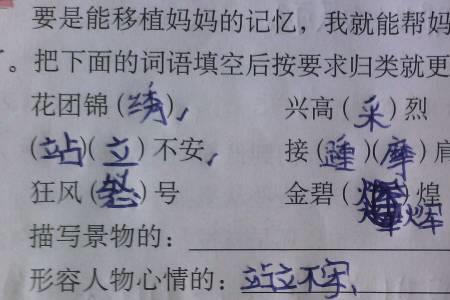 要是能移植妈妈的记忆，我就能帮妈
。把下面的词语填空后按要求归类就更
花团锦(绣) 兴高(采)烈
(站)(立)不安 接()(摩)肩
狂风(怒)号 金碧(辉)煌
描写景物的：
形容人物心情的：站立不安